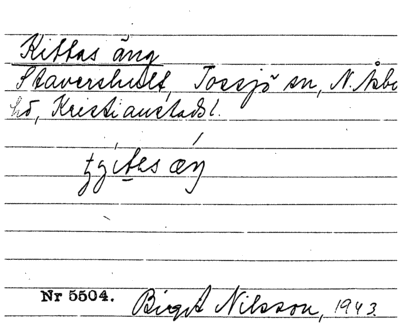 Kittas äng
Stavershult, Tossjö sn, N. Åsbo
hd, Kristianstads l.
Nr 5504. Birgit Nilsson, 1943.